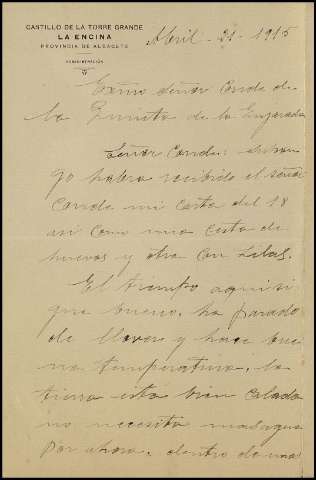 CASTILLO DE LA TORRE GRANDE
LA ENCINA
PROVINCIA DE ALBACETE
ADMINISTRACIÓN
Abril - 21 - 1915
Exmo señor Conde de
la Quinta de la Enjarada
Señor Conde: supon
go habra recibido el señor
Conde mi carta del 18
asi como una cesta de
huevos y otra con Lilas.
El tiempo aqui si
gue bueno, ha parado
de llover y hace bue
na temperatura, la
tierra esta bien calada
no necesita mas agua
por ahora, dentro de unos